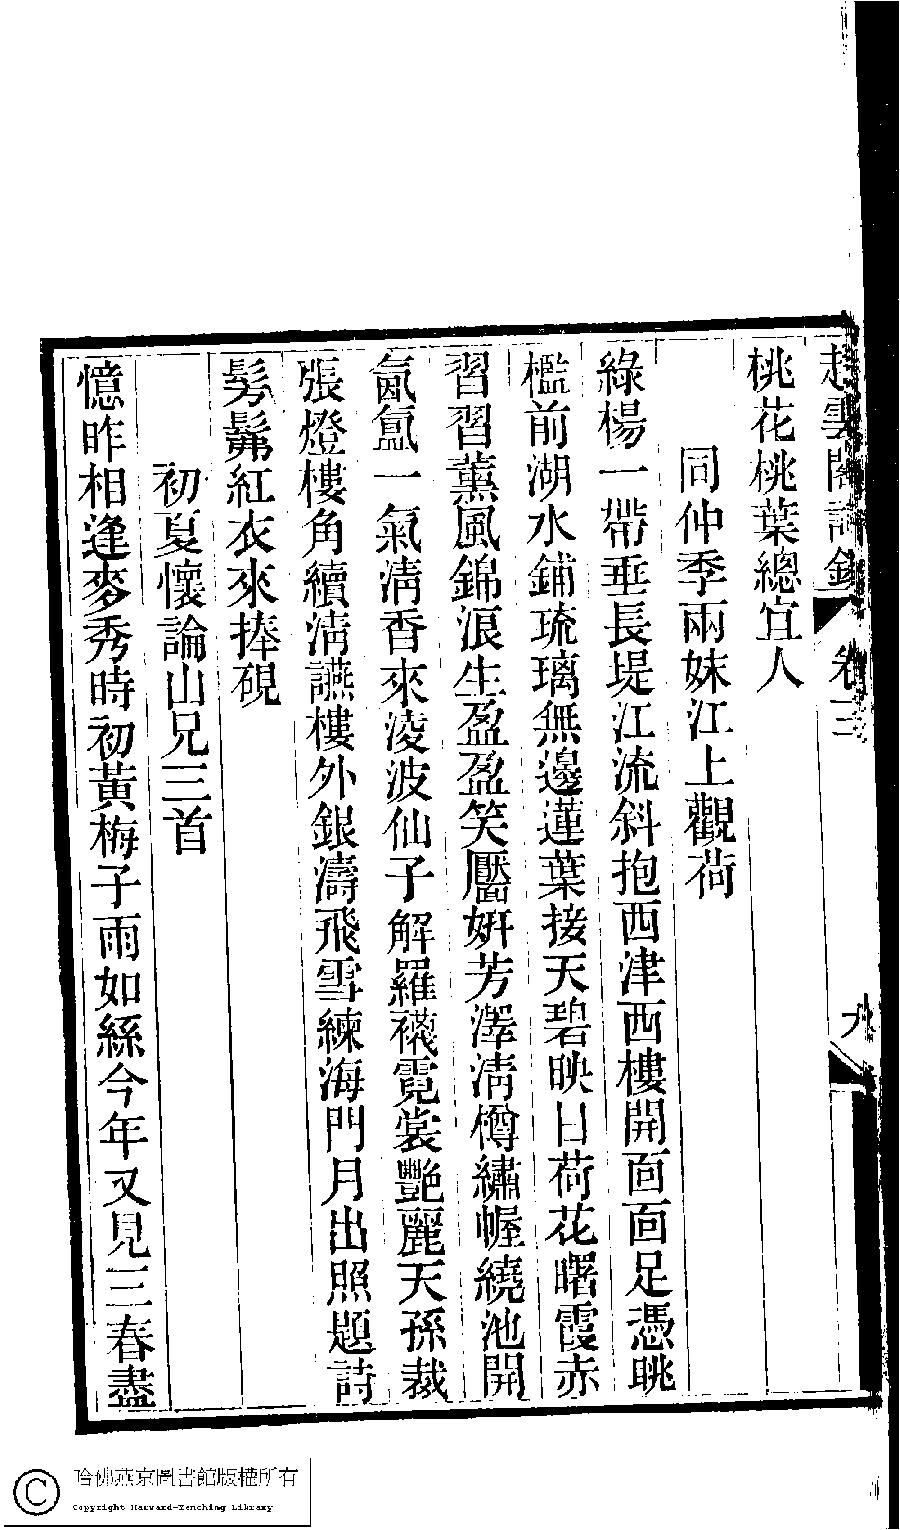 起雲閣詩鈔 卷三 九
桃花桃葉總宜人
同仲季兩妹江上觀荷
綠楊一帶垂長堤江流斜抱西津西樓開面面足憑眺
檻前湖水鋪琉璃無邊蓮葉接天碧映日荷花曙霞赤
習習薰風錦浪生盈盈笑靨妍芳澤淸樽繡幄繞池開
氤氳一氣淸香來凌波仙子解羅襪霓裳艷麗天孫裁
張燈樓角續淸讌樓外銀濤飛雪練海門月出照題詩
髣髴紅衣來捧硯
初夏懷論山兄三首
憶昨相逢麥秀時初黃梅子雨如絲今年又見三春盡
哈佛燕京圖書館版權所有
Copyright Harvard-Yenching Library